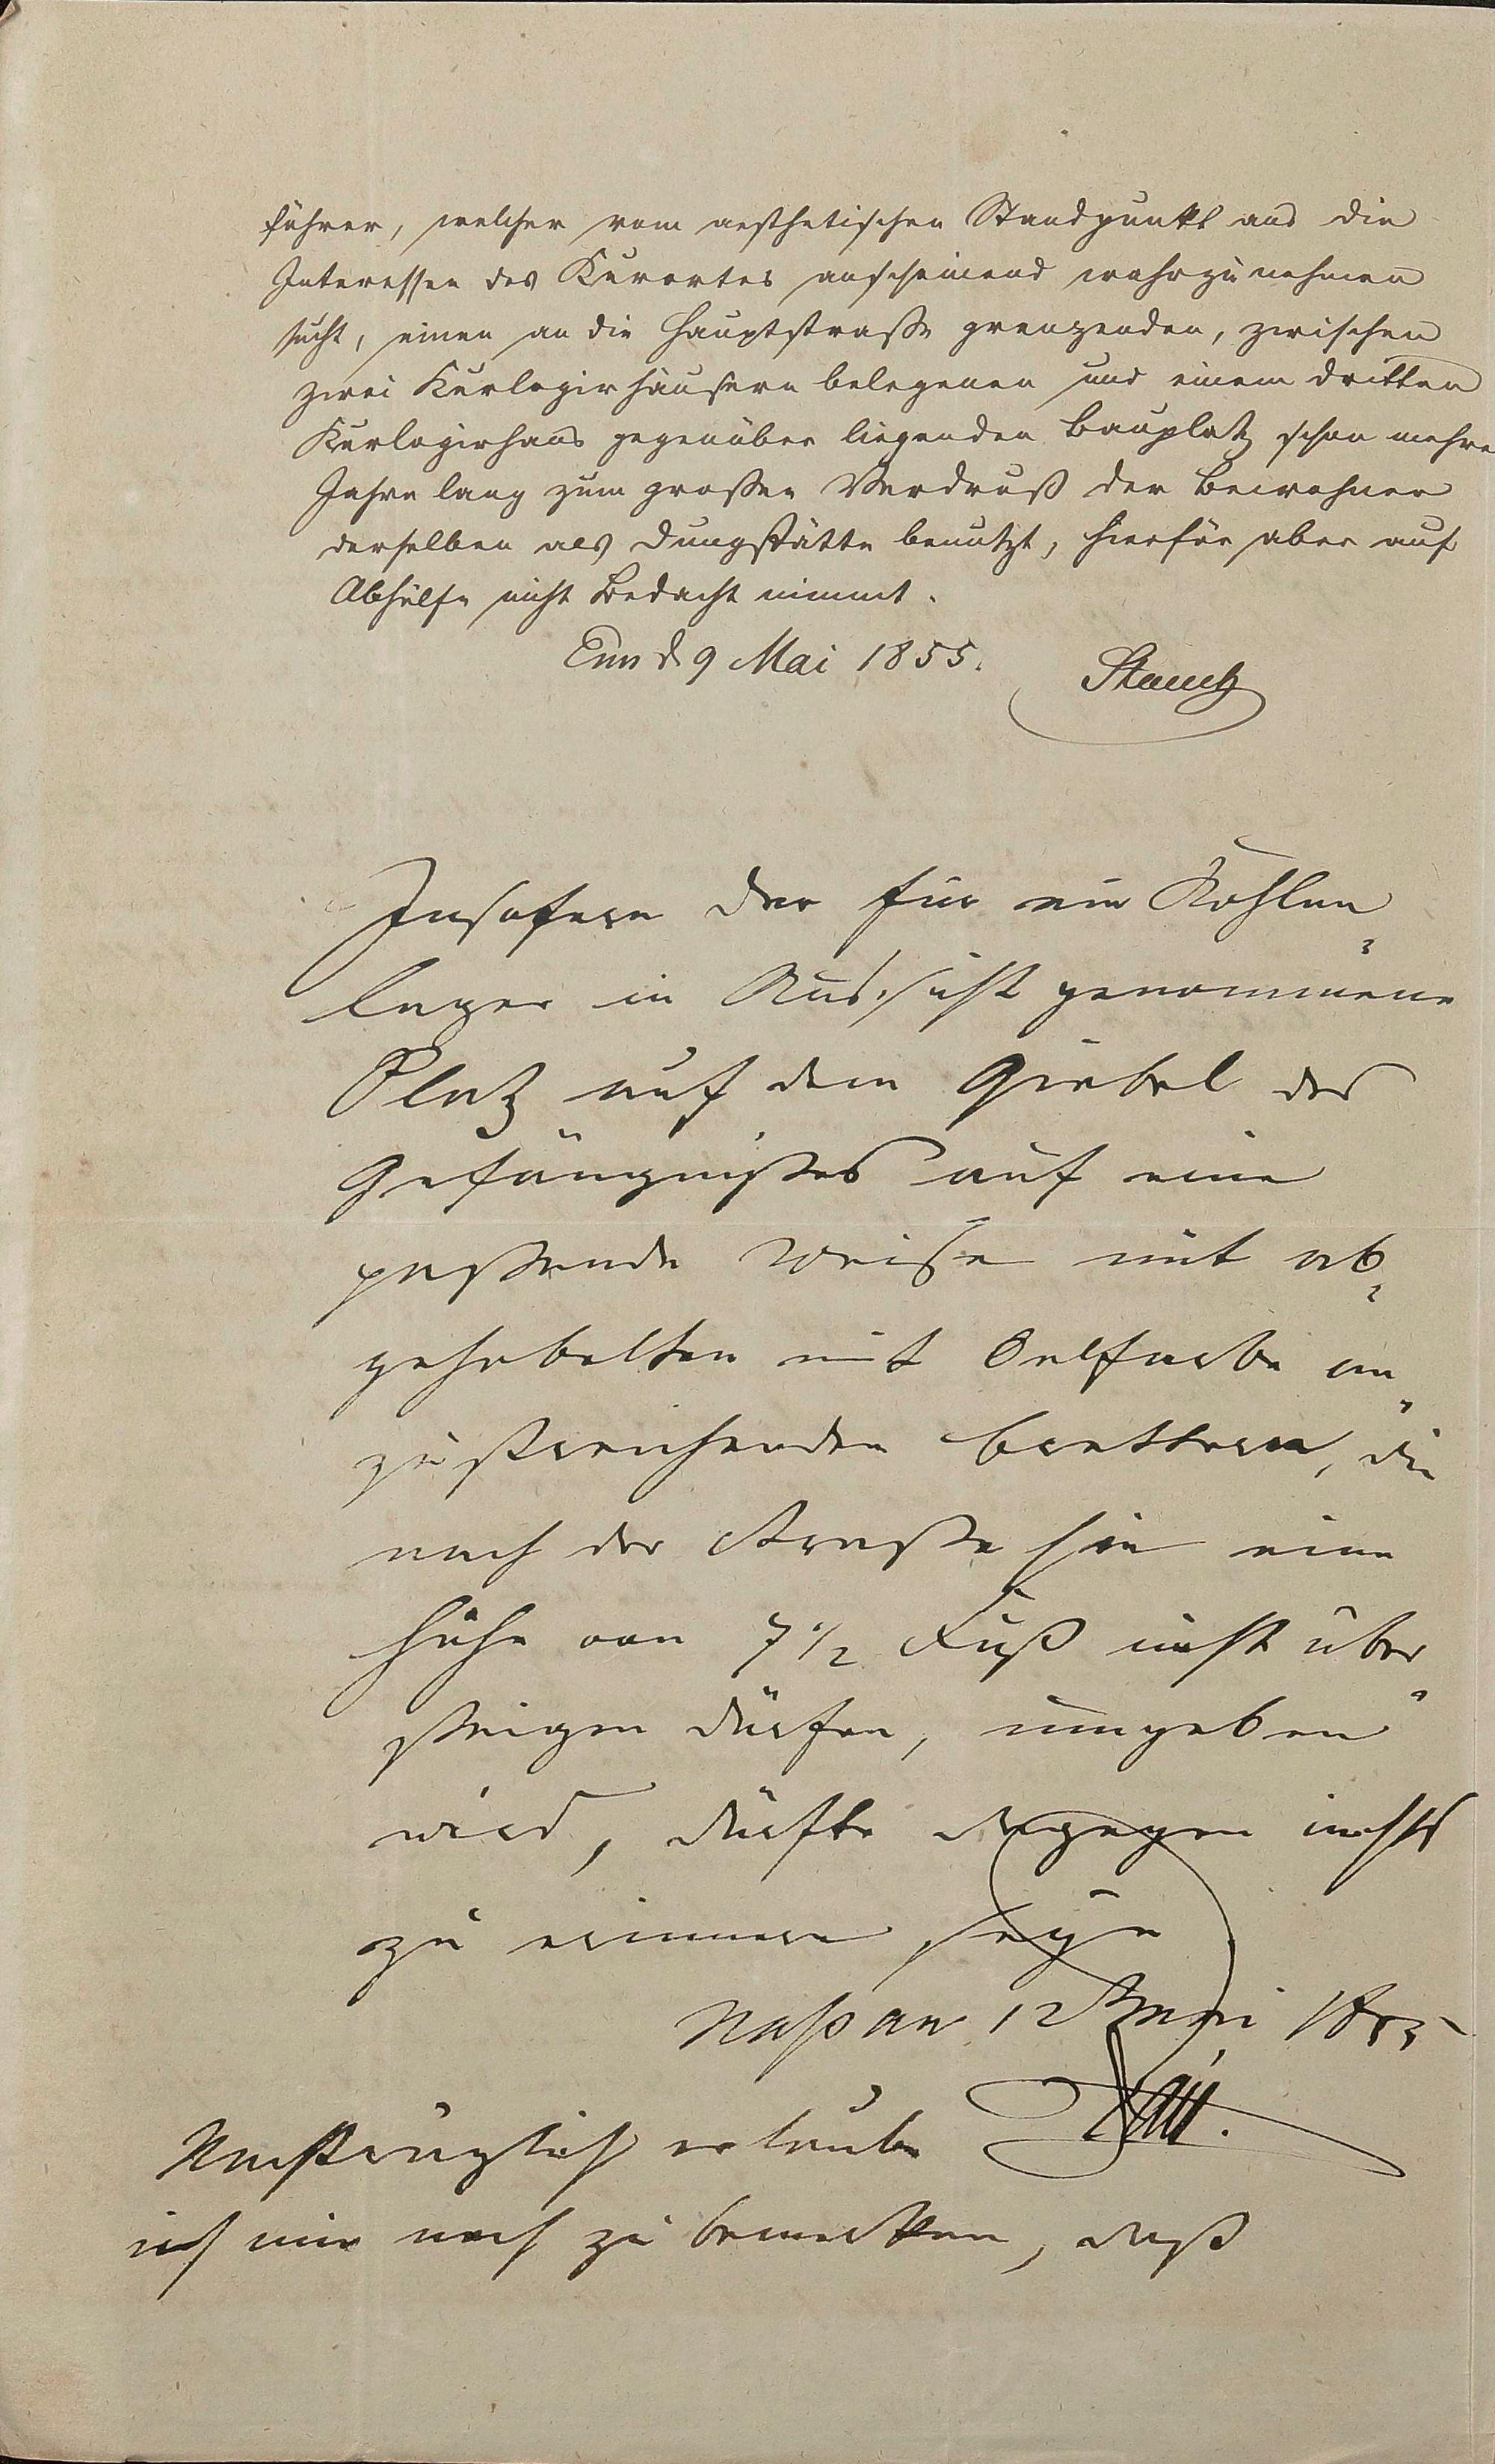 führer, welcher vom aesthetischen Standpunkt aus die
Interessen des Kurortes anscheinend wahrzunehmen
sucht, einen an die Hauptstraße grenzenden, zwischen
zwei Kurlogirhäusern belegenen und einem dritten
Kurlogirhaus gegenüber liegenden Bauplatz schon mehre
Jahre lang zum großen Verdruß der Bewohner
derselben als Dungstätte benutzt, hierfür aber auf
Abhülfe nicht Bedacht nimmt.
Ems d. 9 Mai 1855.
Insofern der für ein Kohlen-
lager in Aussicht genommene
Platz auf dem Giebel des
Gefängnißes auf eine
paßende Weise mit ab-
gehobelten mit Oelfarbe an-
zustreichenden Brettern, die
nach der Straße hin eine
Höhe von 7 1/2 Fuß nicht über-
steigen dürfen, umgeben
wird, dürfte dagegen nichts
zu erinnern seyn
Nassau 12 Mai 1855
Nachträglich erlaube
ich mir noch zu bemerken, daß